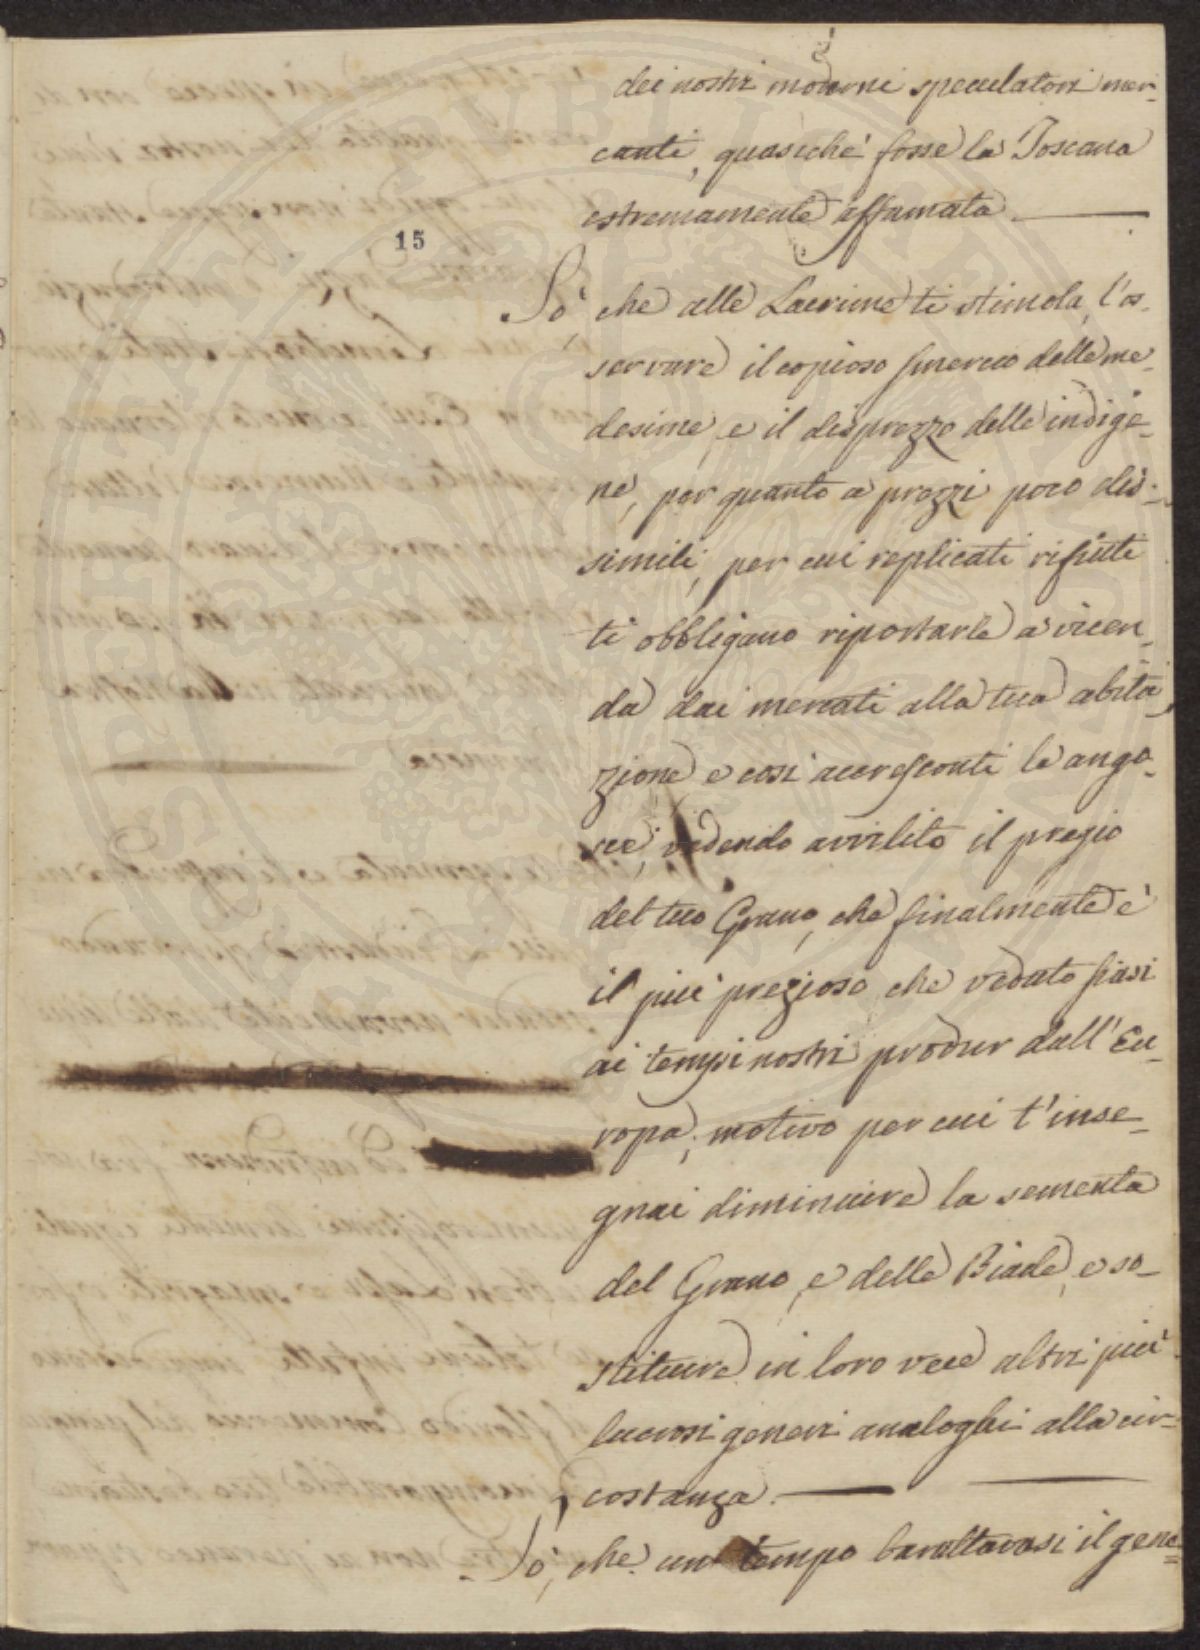 dei nostri moderni speculatori mer-
canti, quasiché fosse la Toscana
estremamente affamata.
15
Só, che alle Lacrime ti stimola, l'os-
servare il copioso smercio delle me-
desime, e il disprezzo delle indige-
ne, per quanto a prezzi poco dis-
simili, per cui replicati rifiuti
ti obbligano riportarle a vicen-
da dai mercati alla tua abita-
zione e così accresconti le ango-
scie, vedendo avvilito il pregio
del tuo Grano, che finalmente è
il piu' prezioso che veduto siasi
ai tempi nostri produr dall'Eu-
ropa; motivo per cui t'inse-
gnai diminuire la sementa
del Grano, e delle Biade, e so-
stituire in loro vece altri piu'
lucrosi generi analoghi alla cir-
costanza.
Só, che un tempo barattavasi il gene-